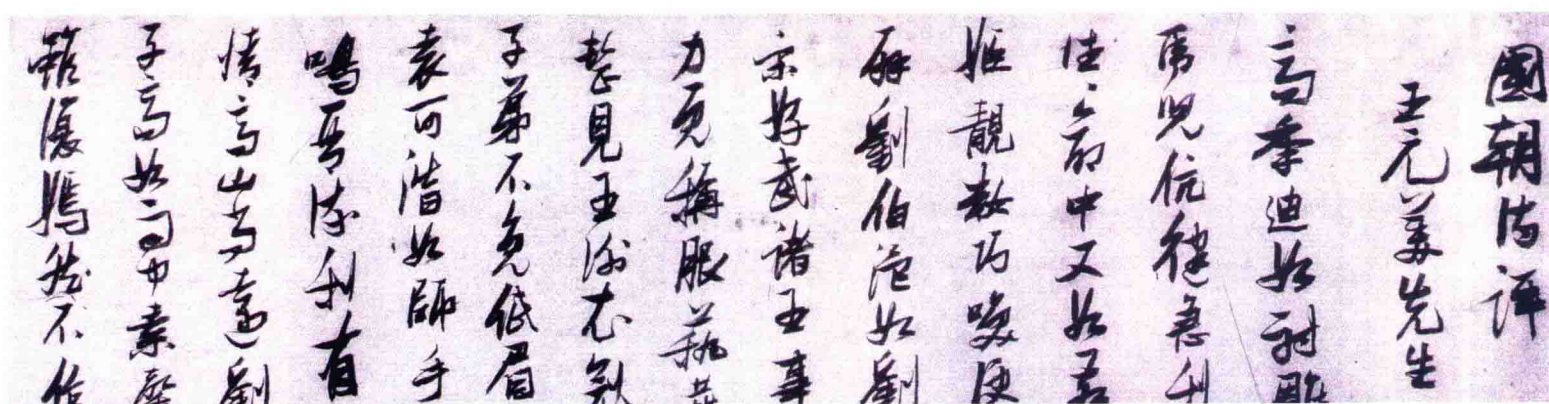 國朝詩評
王元美先生
高季迪如射雕
兒伉健急利
往〻命中又如燕
姬靚粧巧笑便
辟劉伯温如劉
宋好武諸王事
力既稱服藝華
整見王謝衣冠
子弟不免低眉
袁可潛如師手
鳴琴流利有
情高山尚遠劉
子高如雨中素馨
雖復嫣然不作